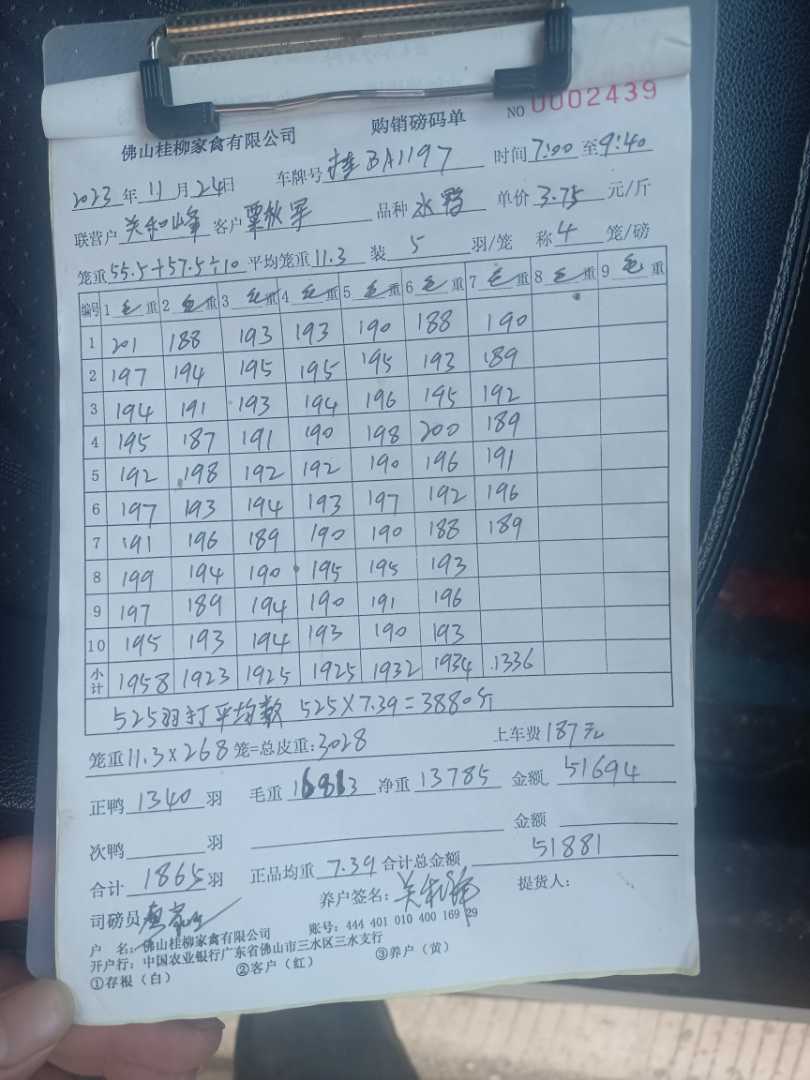 佛山桂柳家禽有限公司 购销磅码单 NO 0002439
2023 年 11 月 24日 车牌号 桂BA1197 时间 7:00 至 9:40
联营户 关和峰 客户 覃秋军 品种 水鸭 单价 3.75 元/斤
笼重 55.5+57.5÷10 平均笼重 11.3 装 5 羽/笼 称 4 笼/磅
编号 1 毛重 2 毛重 3 毛重 4 毛重 5 毛重 6 毛重 7 毛重 8 毛重 9 毛重
1 201 188 193 193 190 188 190
2 197 194 195 195 195 193 189
3 194 191 193 194 196 195 192
4 195 187 191 190 198 200 189
5 192 198 192 192 190 196 191
6 197 193 194 193 197 192 196
7 191 196 189 190 190 188 189
8 199 194 190 195 195 193
9 197 189 194 190 191 196
10 195 193 194 193 190 193
小计 1958 1923 1925 1925 1932 1934 1336
525羽打平均数 525×7.39=3880斤
笼重 11.3×268 笼=总皮重: 3028 上车费 187元
正鸭 1340 羽 毛重 16813 净重 13785 金额 51694
次鸭 羽 金额
合计 1865 羽 正品均重 7.39 合计总金额 51881
司磅员 养户签名: 提货人:
户 名: 佛山桂柳家禽有限公司 账号: 444 401 010 400 169 29
开户行: 中国农业银行广东省佛山市三水区三水支行
①存根（白） ②客户（红） ③养户（黄）